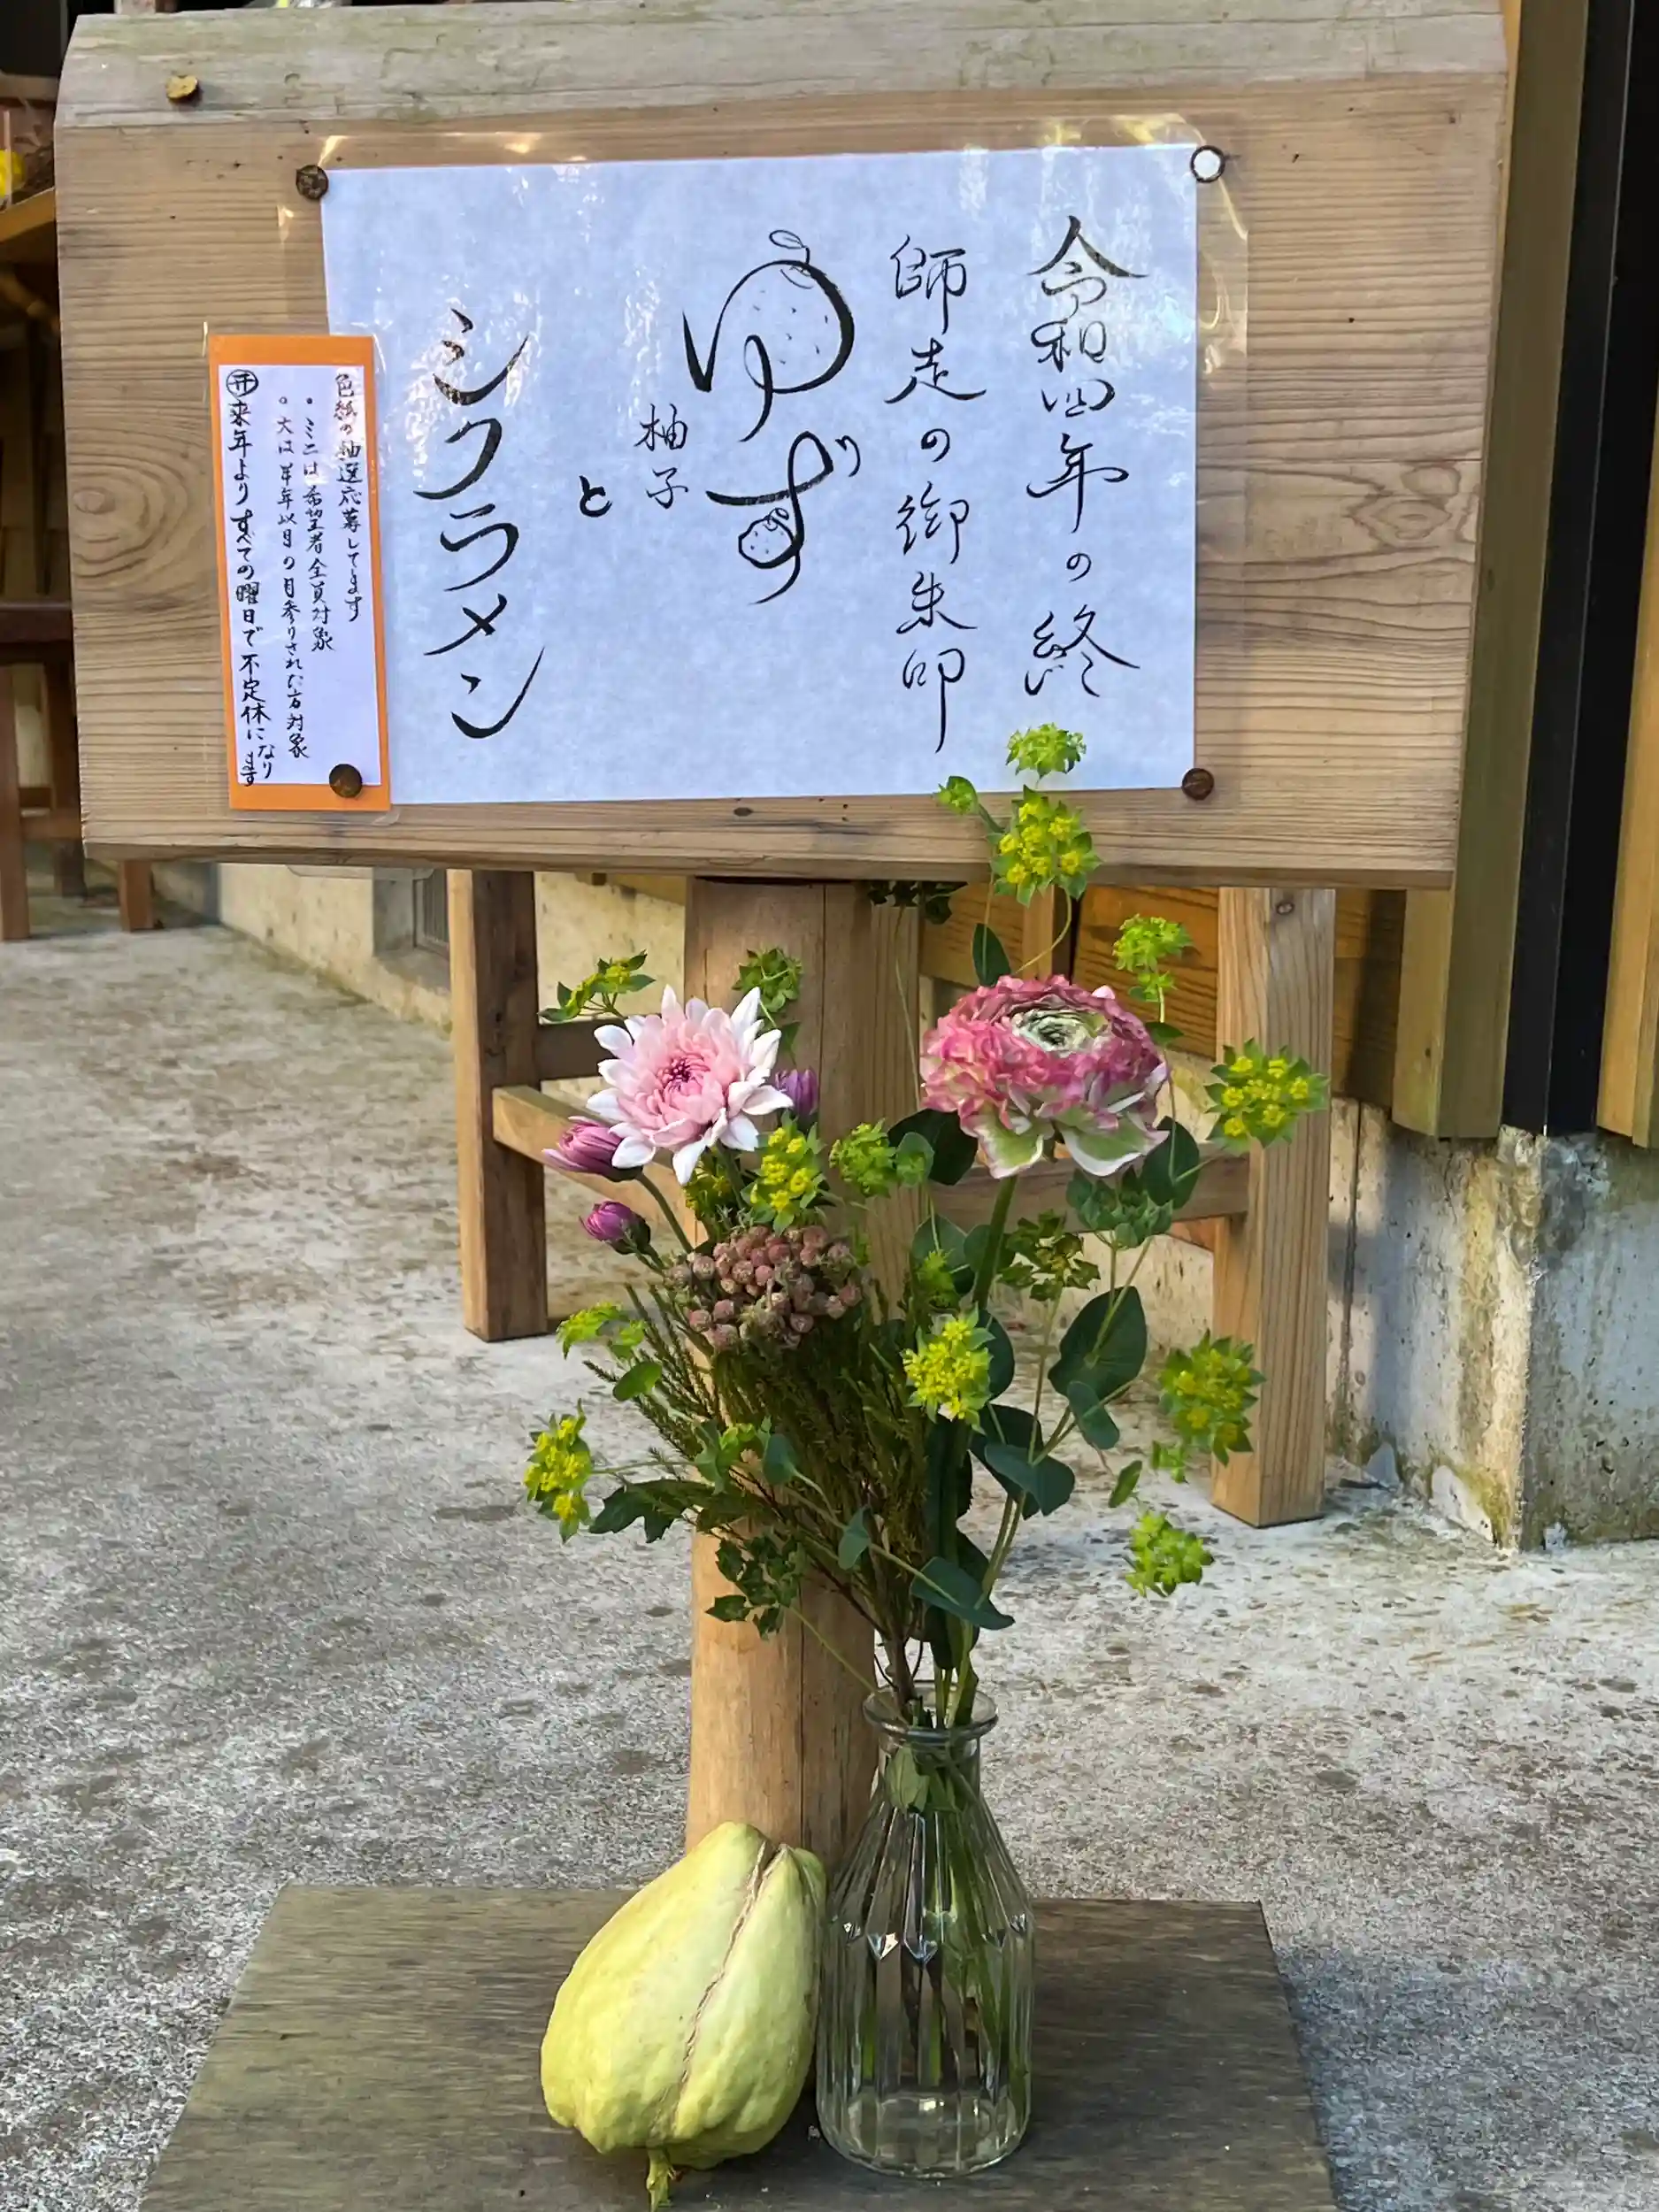 令和四年の終
師走の御朱印
ゆず
柚子
と
シクラメン
色紙の抽選応募してます
・ミニは希望者全員対象
○大は半年以目の日参りされた方対象
㊖来年よりすべての曜日で不定休になります